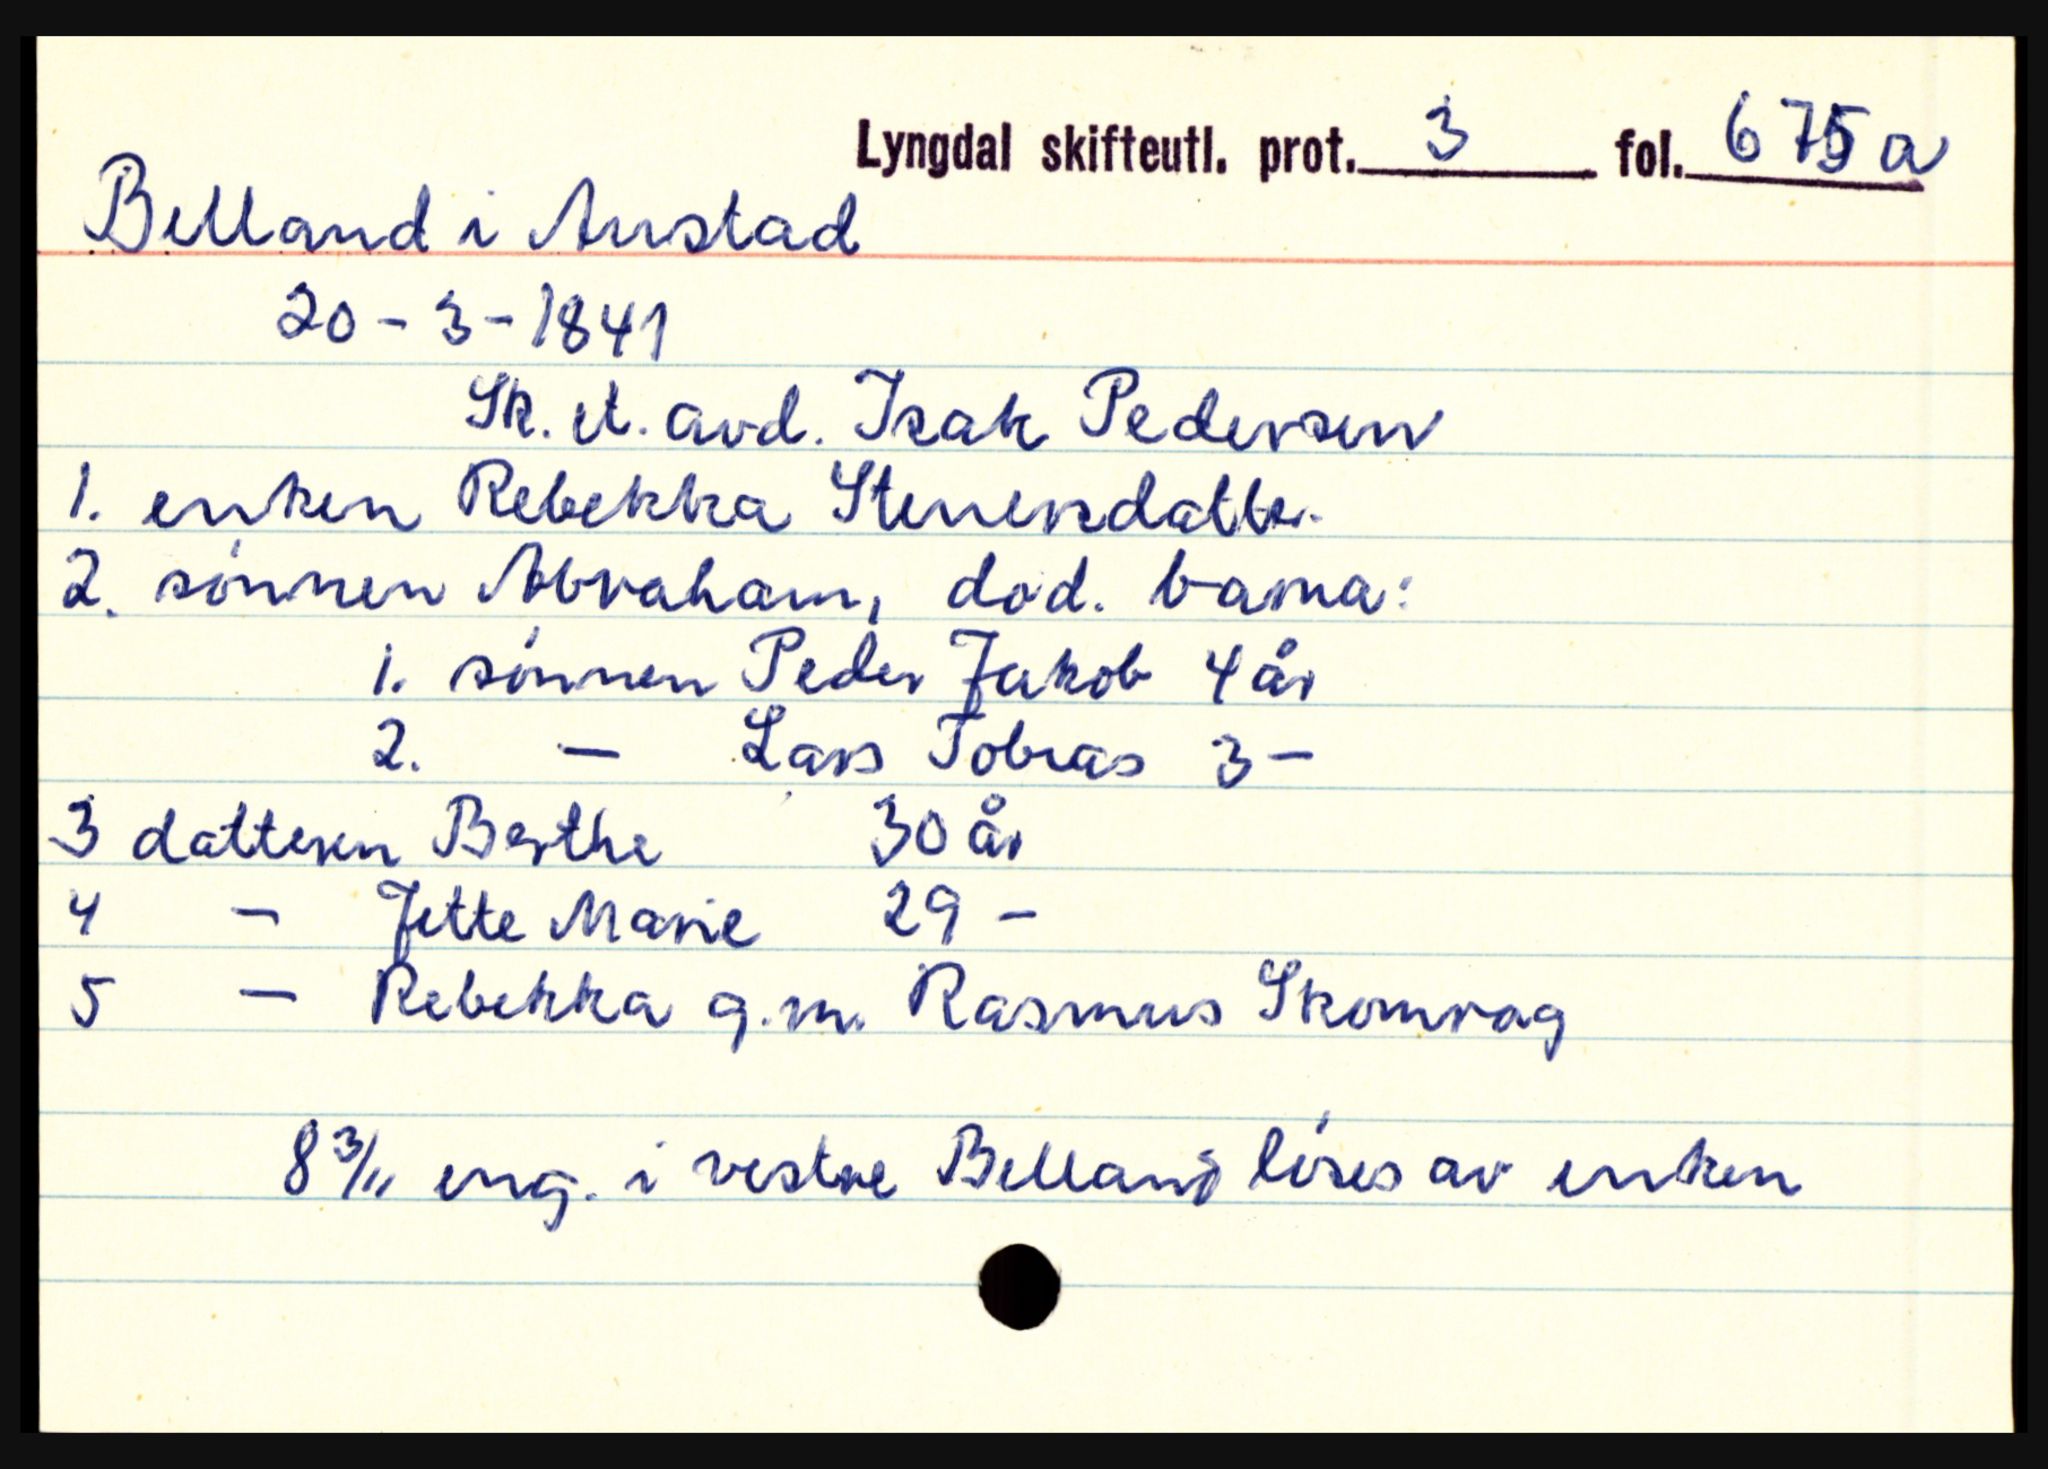 Lyngdal skifteutl. prot. 3 fol. 675a
Belland i Austad
20-3-1841
Sk. et. avd. Isak Pedersen
1. enken Rebekka Stenersdatter.
2. sønnen Abraham, död. barna:
1. sønnen Peder Jakob 4 år
2. — Lars Tobias 3 —
3 datteren Berthe 30 år
4 — Jette Marie 29 —
5 — Rebekka g.m. Rasmus Skomrag
8 3/11 eng. i vestre Belland løses av enken